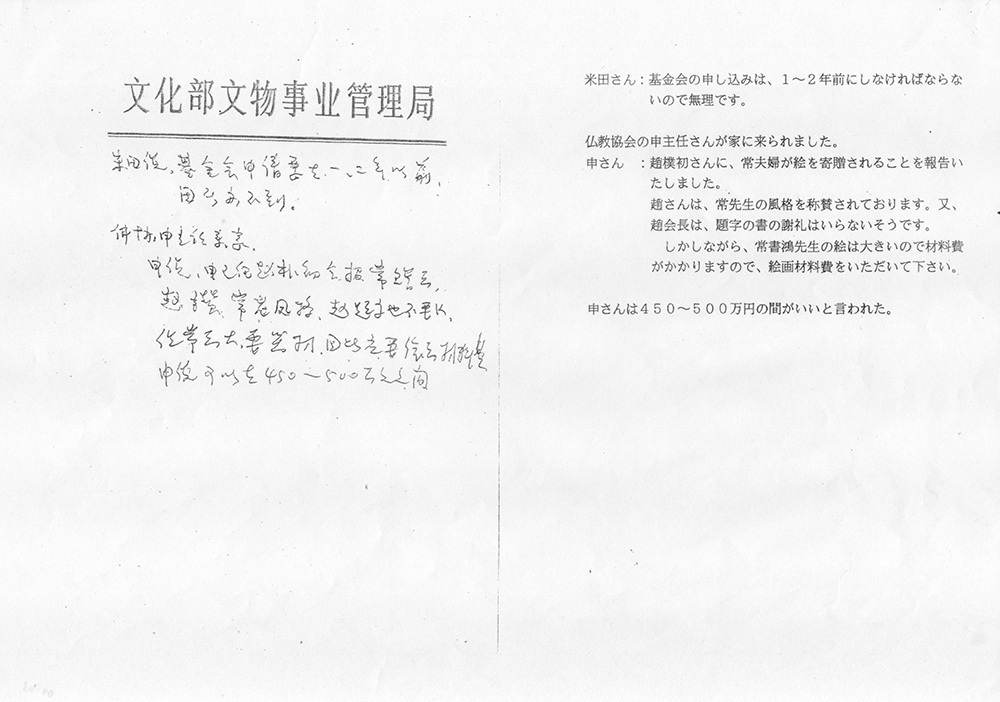 文化部文物事业管理局
米田说，基金会申请要在一、二年以前，
因而办不到。
佛协申主任来家。
申说，申已向赵朴初会报常赠画，
赵称赞常老风格，赵题字也不要钱，
但常画大，要器材，因此应要绘画材料费
申说可以在450～500万之间
米田さん：基金会の申し込みは、１～２年前にしなければならな
いので無理です。
仏教協会の申主任さんが家に来られました。
申さん　：趙樸初さんに、常夫婦が絵を寄贈されることを報告い
たしました。
趙さんは、常先生の風格を称賛されております。又、
趙会長は、題字の書の謝礼はいらないそうです。
しかしながら、常書鴻先生の絵は大きいので材料費
がかかりますので、絵画材料費をいただいて下さい。
申さんは４５０～５００万円の間がいいと言われた。